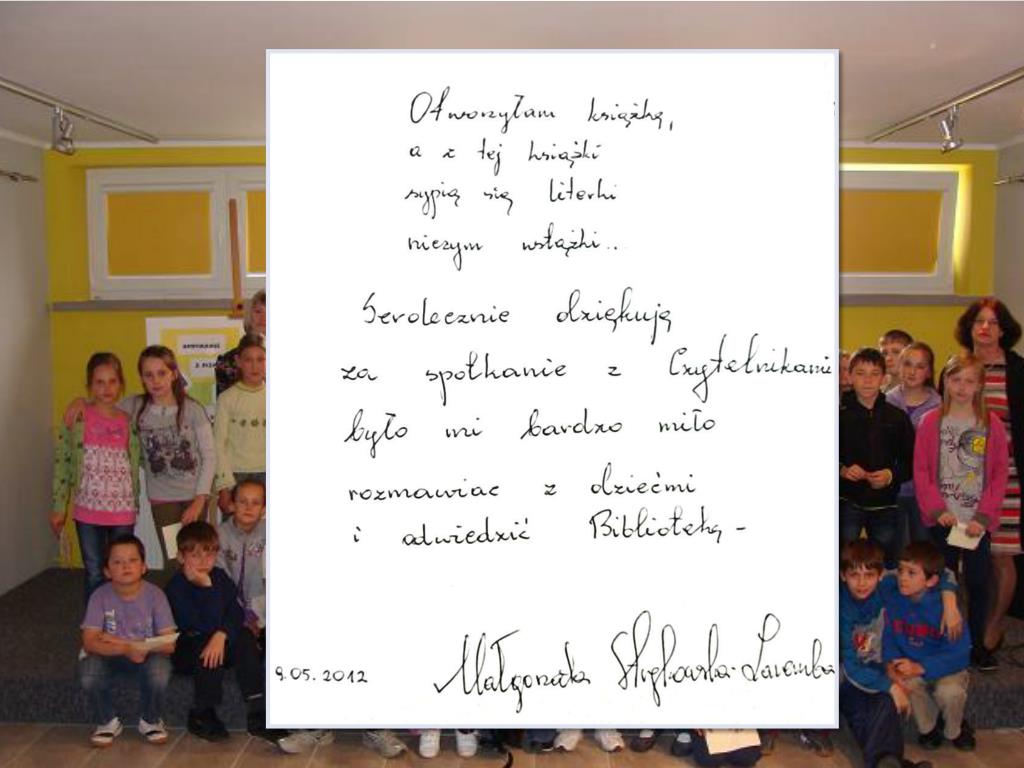 Otworzyłam książkę,
a z tej książki
sypią się literki
niczym wstążki..
Serdecznie dziękuję
za spotkanie z Czytelnikami
było mi bardzo miło
rozmawiac z dziećmi
i odwiedzić Bibliotekę -
9.05.2012
Małgorzata